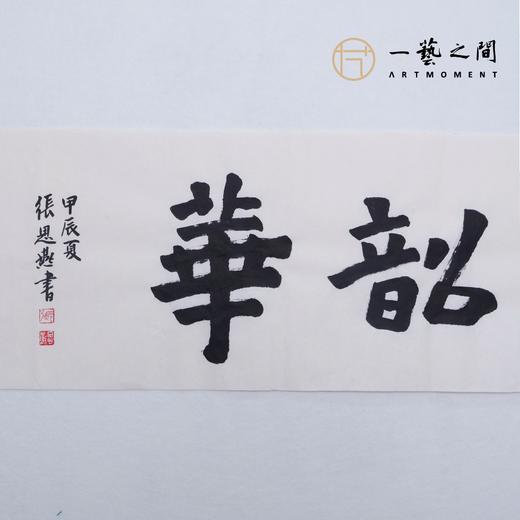 一藝之間
ARTMOMENT
韶華
甲辰夏
張思燕書